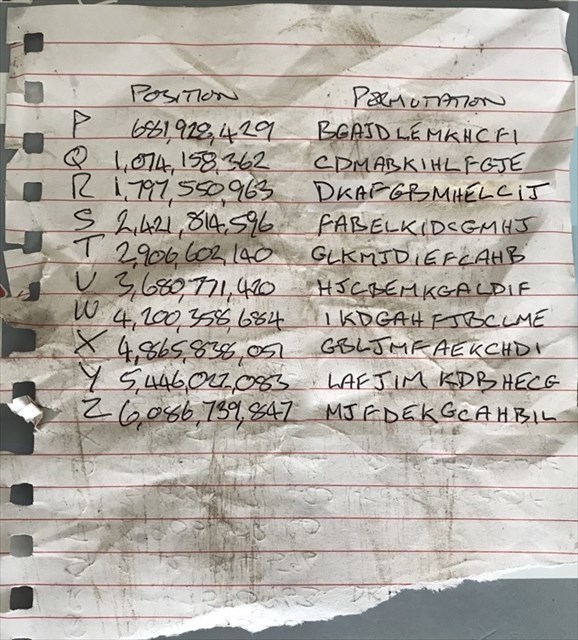 POSITION PERMUTATION
P 681,928,429 BGAJDLEMKHCFI
Q 1,074,158,362 CDMABKIHLFGJE
R 1,797,550,963 DKAFGBMHELCIJ
S 2,421,814,596 FABELKIDCGMHJ
T 2,906,602,140 GLKMJDIEFCAHB
U 3,680,771,420 HJCBEMKGALDIF
W 4,200,358,684 IKDGAHFJBCLME
X 4,865,838,051 GBLJMFAEKCHDI
Y 5,446,022,083 LAFJIM KDBHECG
Z 6,086,739,847 MJFDEKGCAHBIL